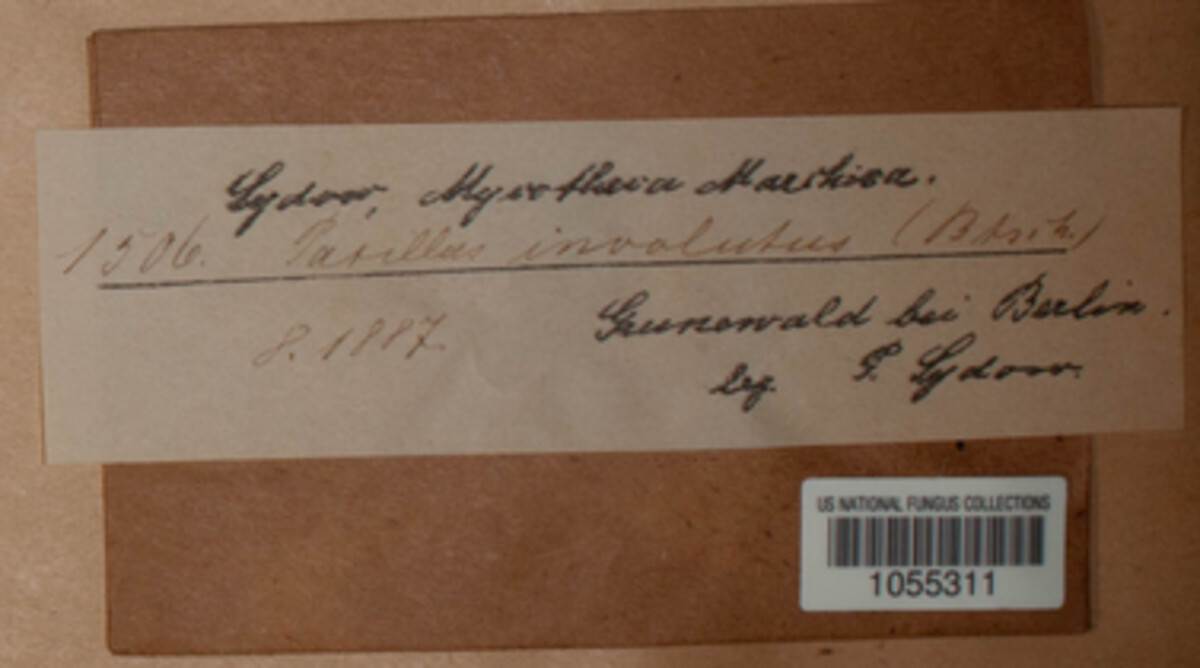 Sydow, Mycotheca Marchica.
1506. Paxillus involutus (Btsch.)
8. 1887
Grunewald bei Berlin.
leg. P. Sydow.
US NATIONAL FUNGUS COLLECTIONS
1055311